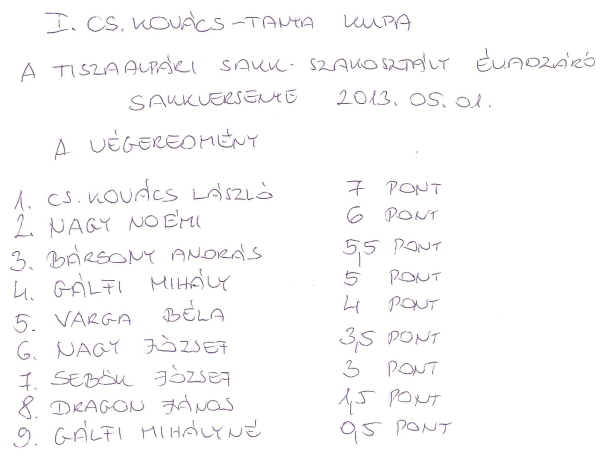 I. CS. KOVÁCS-TANYA KUPA
A TISZAALPÁRI SAKK-SZAKOSZTÁLY ÉVADZÁRÓ
SAKKVERSENYE 2013. 05. 01.
A VÉGEREDMÉNY
1. CS. KOVÁCS LÁSZLÓ 7 PONT
2. NAGY NOÉMI 6 PONT
3. BÁRSONY ANDRÁS 5,5 PONT
4. GÁLFI MIHÁLY 5 PONT
5. VARGA BÉLA 4 PONT
6. NAGY JÓZSEF 3,5 PONT
7. SEBŐK JÓZSEF 3 PONT
8. DRAGON JÁNOS 1,5 PONT
9. GÁLFI MIHÁLYNÉ 0,5 PONT